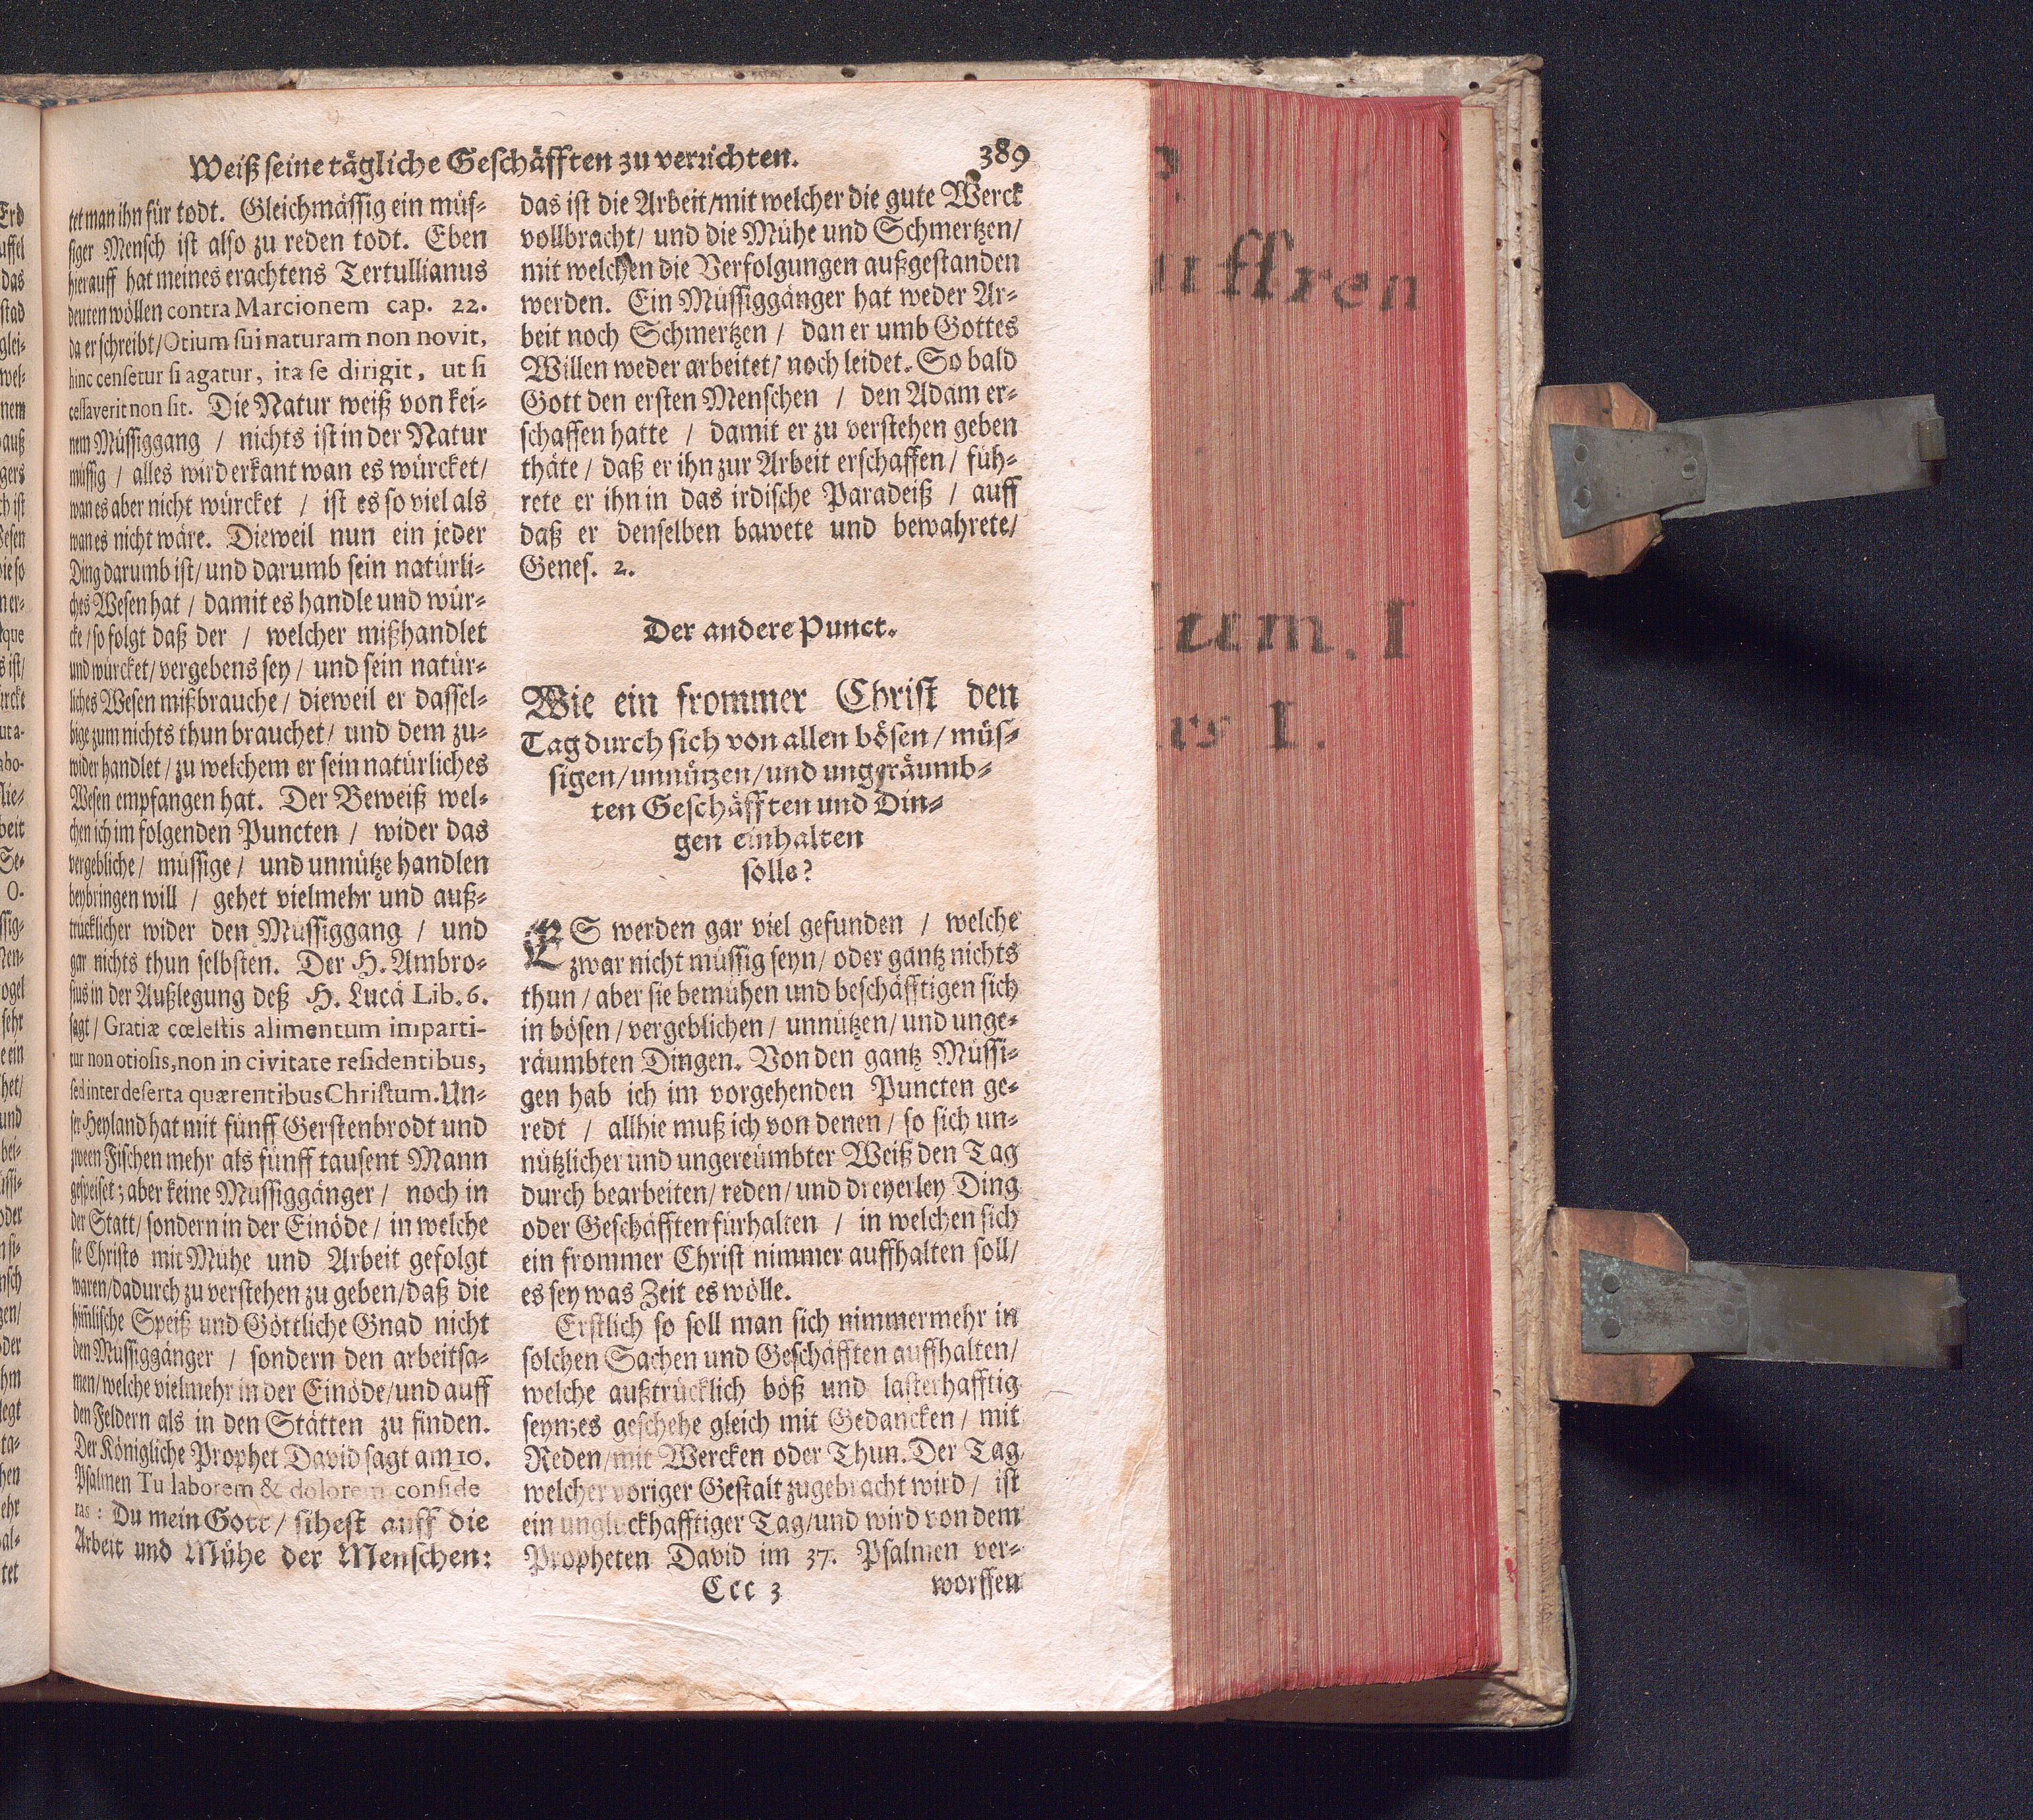 Weiß seine tägliche Geschäfften zu verrichten. 389
tet man ihn für todt. Gleichmässig ein müs-
siger Mensch ist also zu reden todt. Eben
hierauff hat meines erachtens Tertullianus
deuten wöllen contra Marcionem cap. 22.
da er schreibt/ Otium sui naturam non novit,
hinc censetur si agatur, ita se dirigit, ut si
cessaverit non sit. Die Natur weiß von kei-
nem Müssiggang / nichts ist in der Natur
müssig / alles wird erkant wan es würcket/
wan es aber nicht würcket / ist es so viel als
wan es nicht wäre. Dieweil nun ein jeder
Ding darumb ist/ und darumb sein natürli-
ches Wesen hat / damit es handle und wür-
cke / so folgt daß der / welcher mißhandlet
und würcket/ vergebens sey / und sein natür-
liches Wesen mißbrauche / dieweil er dassel-
bige zum nichts thun brauchet/ und dem zu-
wider handlet / zu welchem er sein natürliches
Wesen empfangen hat. Der Beweiß wel-
chen ich im folgenden Puncten / wider das
vergebliche / müssige / und unnütze handlen
beybringen will / gehet vielmehr und auß-
trücklicher wider den Müssiggang / und
gar nichts thun selbsten. Der H. Ambro-
sius in der Außlegung deß H. Lucä Lib. 6.
sagt / Gratiæ cœlestis alimentum imparti-
tur non otiosis, non in civitate residentibus,
sed inter deserta quærentibus Christum. Un-
ser Heyland hat mit fünff Gerstenbrodt und
zween Fischen mehr als fünff tausent Mann
gespeiset; aber keine Müssiggänger / noch in
der Statt/ sondern in der Einöde / in welche
sie Christo mit Mühe und Arbeit gefolgt
waren/dadurch zu verstehen zu geben/daß die
himlische Speiß und Göttliche Gnad nicht
den Müssiggänger / sondern den arbeitsa-
men/ welche vielmehr in der Einöde/und auff
den Feldern als in den Stätten zu finden.
Der Königliche Prophet David sagt am 10.
Psalmen Tu laborem & dolorem conside
ras: Du mein Gott / sihest auff die
Arbeit und Mühe der Menschen:
das ist die Arbeit/mit welcher die gute Werck
vollbracht/ und die Mühe und Schmertzen/
mit welchen die Verfolgungen außgestanden
werden. Ein Müssiggänger hat weder Ar-
beit noch Schmertzen / dan er umb Gottes
Willen weder arbeitet/ noch leidet. So bald
Gott den ersten Menschen / den Adam er-
schaffen hatte / damit er zu verstehen geben
thäte / daß er ihn zur Arbeit erschaffen / füh-
rete er ihn in das irdische Paradeiß / auff
daß er denselben bawete und bewahrete/
Genes. 2.
Der andere Punct.
Wie ein frommer Christ den
Tag durch sich von allen bösen / müs-
sigen/unnützen/und ungeräumb-
ten Geschäfften und Din-
gen einhalten
solle?
ES werden gar viel gefunden / welche
zwar nicht müssig seyn/ oder gantz nichts
thun / aber sie bemühen und beschäfftigen sich
in bösen / vergeblichen / unnützen/ und unge-
räumbten Dingen. Von den gantz Müssi-
gen hab ich im vorgehenden Puncten ge-
redt / allhie muß ich von denen / so sich un-
nützlicher und ungereümbter Weiß den Tag
durch bearbeiten/ reden/ und dreyerley Ding
oder Geschäfften fürhalten / in welchen sich
ein frommer Christ nimmer auffhalten soll/
es sey was Zeit es wölle.
Erstlich so soll man sich nimmermehr in
solchen Sachen und Geschäfften auffhalten/
welche außtrücklich böß und lasterhafftig
seyn; es geschehe gleich mit Gedancken / mit
Reden/mit Wercken oder Thun. Der Tag
welcher voriger Gestalt zugebracht wird / ist
ein unglückhafftiger Tag/und wird von dem
Propheten David im 37. Psalmen ver-
Ccc 3 worffen
uffren
um. I
rs I.